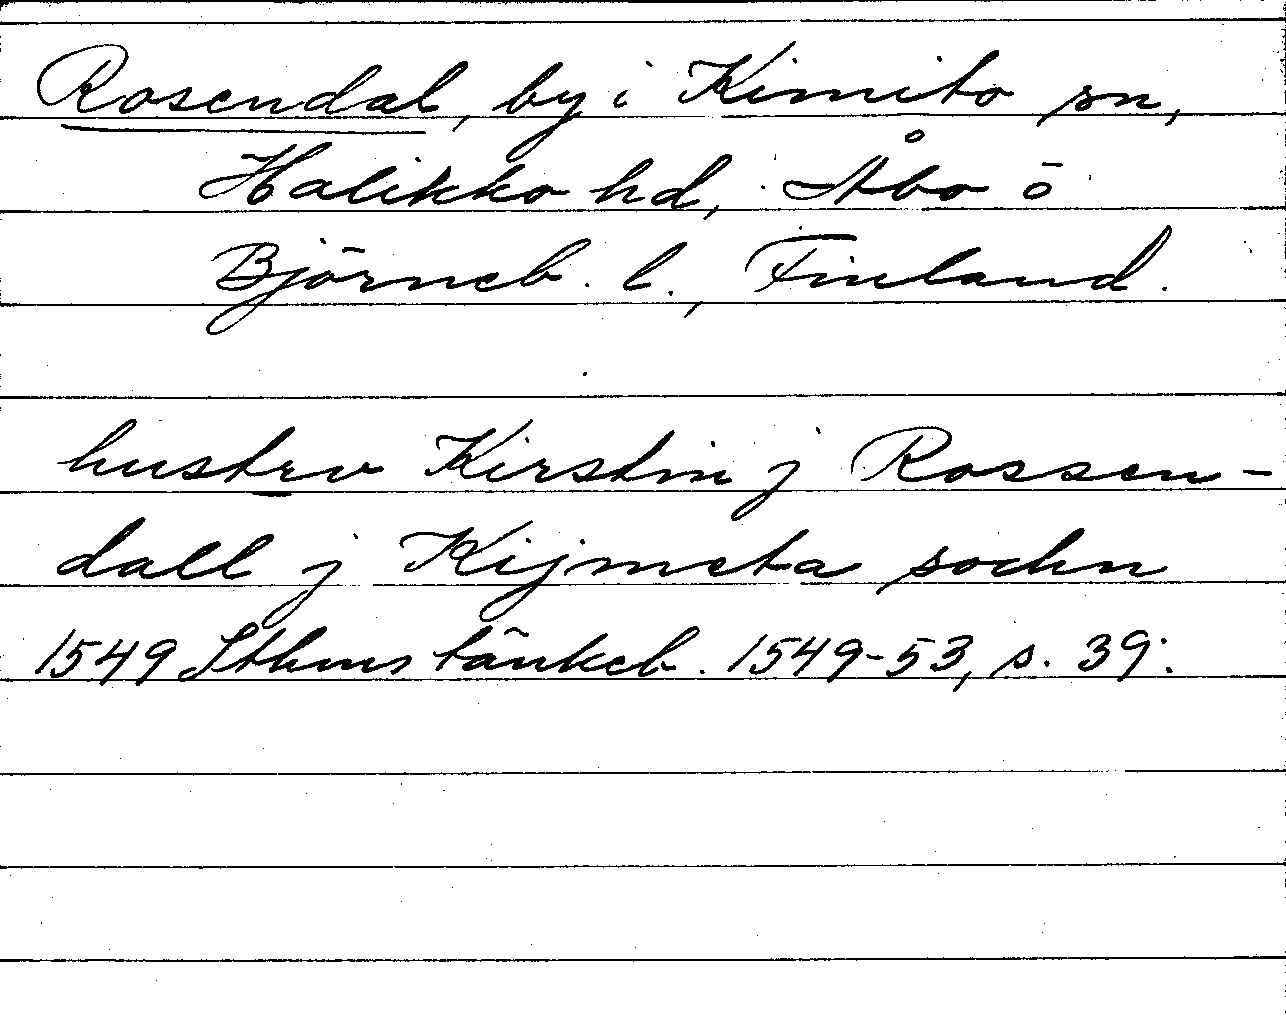 Rosendal, by i Kimito sn,
Halikko hd, Åbo ö
Björneb. l., Finland.
hustrv Kirstin j Rossen-
dall j Kijmeta sochn
1549 Sthms tänkeb. 1549-53, s. 39.